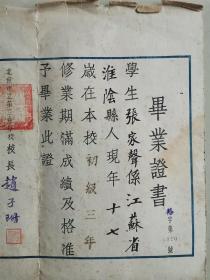 畢業證書
字第
號
學生張家聲係江蘇省
淮陰縣人現年十七
歲在本校初級三年
修業期滿成績及格准
予畢業此證
校長趙子珊